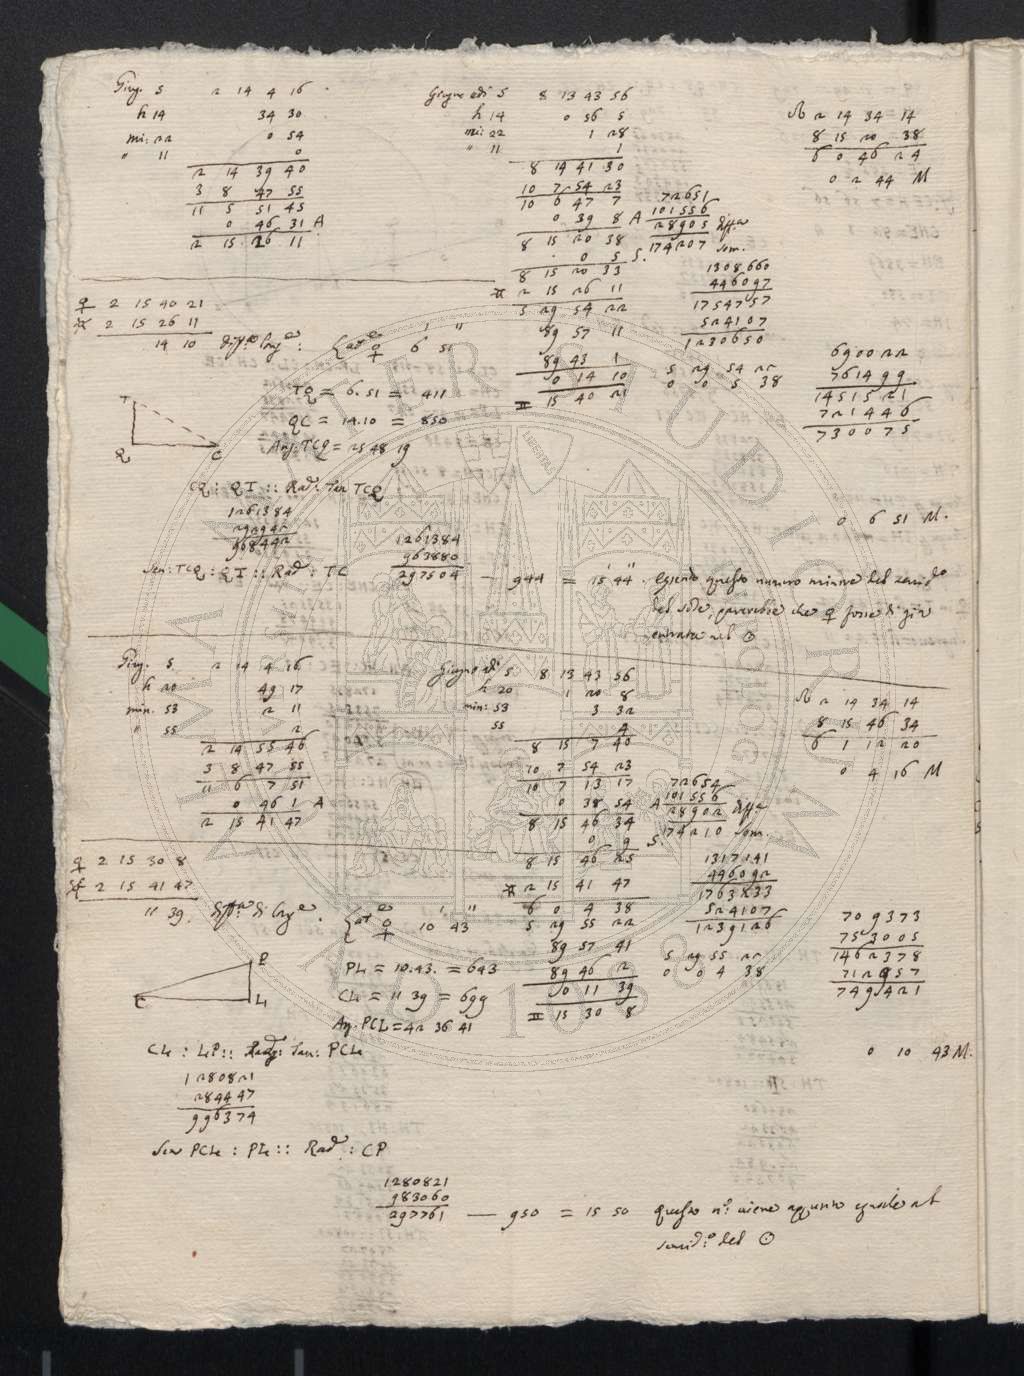 Giug. 5 2 14 4 16
h 14 34 30
mi: 22 0 54
" 11 0
2 14 39 40
3 8 47 55
11 5 51 45
0 46 31 A
2 15 26 11
Giugno adi 5 8 13 43 56
h 14 0 56 5
mi: 22 1 28
" 11 1
8 14 41 30
10 7 54 23
10 6 47 7
0 39 8 A
8 15 20 38
0 5 S.
8 15 20 33
2 15 26 11
5 29 54 22
89 57 11
89 43 1
0 14 10
♊ 15 40 21
72651
101556
28905 Diff.a
174207 Som.
1308660
446097
1754757
524107
1230650
5 29 54 22
0 0 5 38
☊ 2 14 34 14
8 15 20 38
6 0 46 24
0 2 44 M
690022
761499
1451521
721446
730075
0 6 51 M.
♀ 2 15 40 21
2 15 26 11
14 10 diff.a long.e: Lat.e ♀ 6 51
T
Q C
TQ = 6.51 = 411
QC = 14.10 = 850
Ang. TCQ = 25 48 19
CQ : QT :: Rad: Tan TCQ
1261384
292942
968442
Sen: TCQ : QT :: Rad : TC
1261384
963880
297504 — 944 = 15' 44" essendo questo numero minore del semid.o
del sole, parerebbe che ♀ fosse di già
entrata nel ☉
Giug. 5 2 14 4 16
h 20 49 17
min. 53 2 11
" 55 2
2 14 55 46
3 8 47 55
11 6 7 51
0 46 1 A
2 15 41 47
Giugno adi 5 8 13 43 56
h 20 1 20 8
min: 53 3 32
55 4
8 15 7 40
10 7 54 23
10 7 13 17
0 38 54 A
8 15 46 34
0 9 S.
8 15 46 25
2 15 41 47
6 0 4 38
5 29 55 22
89 57 41
89 46 2
0 11 39
♊ 15 30 8
72654
101556
28902 Diff.a
174210 Som.
1317141
446092
1763233
524107
1239126
5 29 55 22
0 0 4 38
☊ 2 14 34 14
8 15 46 34
6 1 12 20
0 4 16 M
709373
753005
1462378
712957
749421
0 10 43 M.
♀ 2 15 30 8
2 15 41 47
11 39. diff.a di long.e. Lat.e ♀ 10' 43"
P
C L
PL = 10.43. = 643
CL = 11 39 = 699
Ang. PCL = 42 36 41
CL : LP :: Rad: Tan: PCL
1280821
284447
996374
Sen PCL : PL :: Rad : CP
1280821
983060
297761 — 950 = 15 50 questo n.o viene appunto eguale al
semid.o del ☉